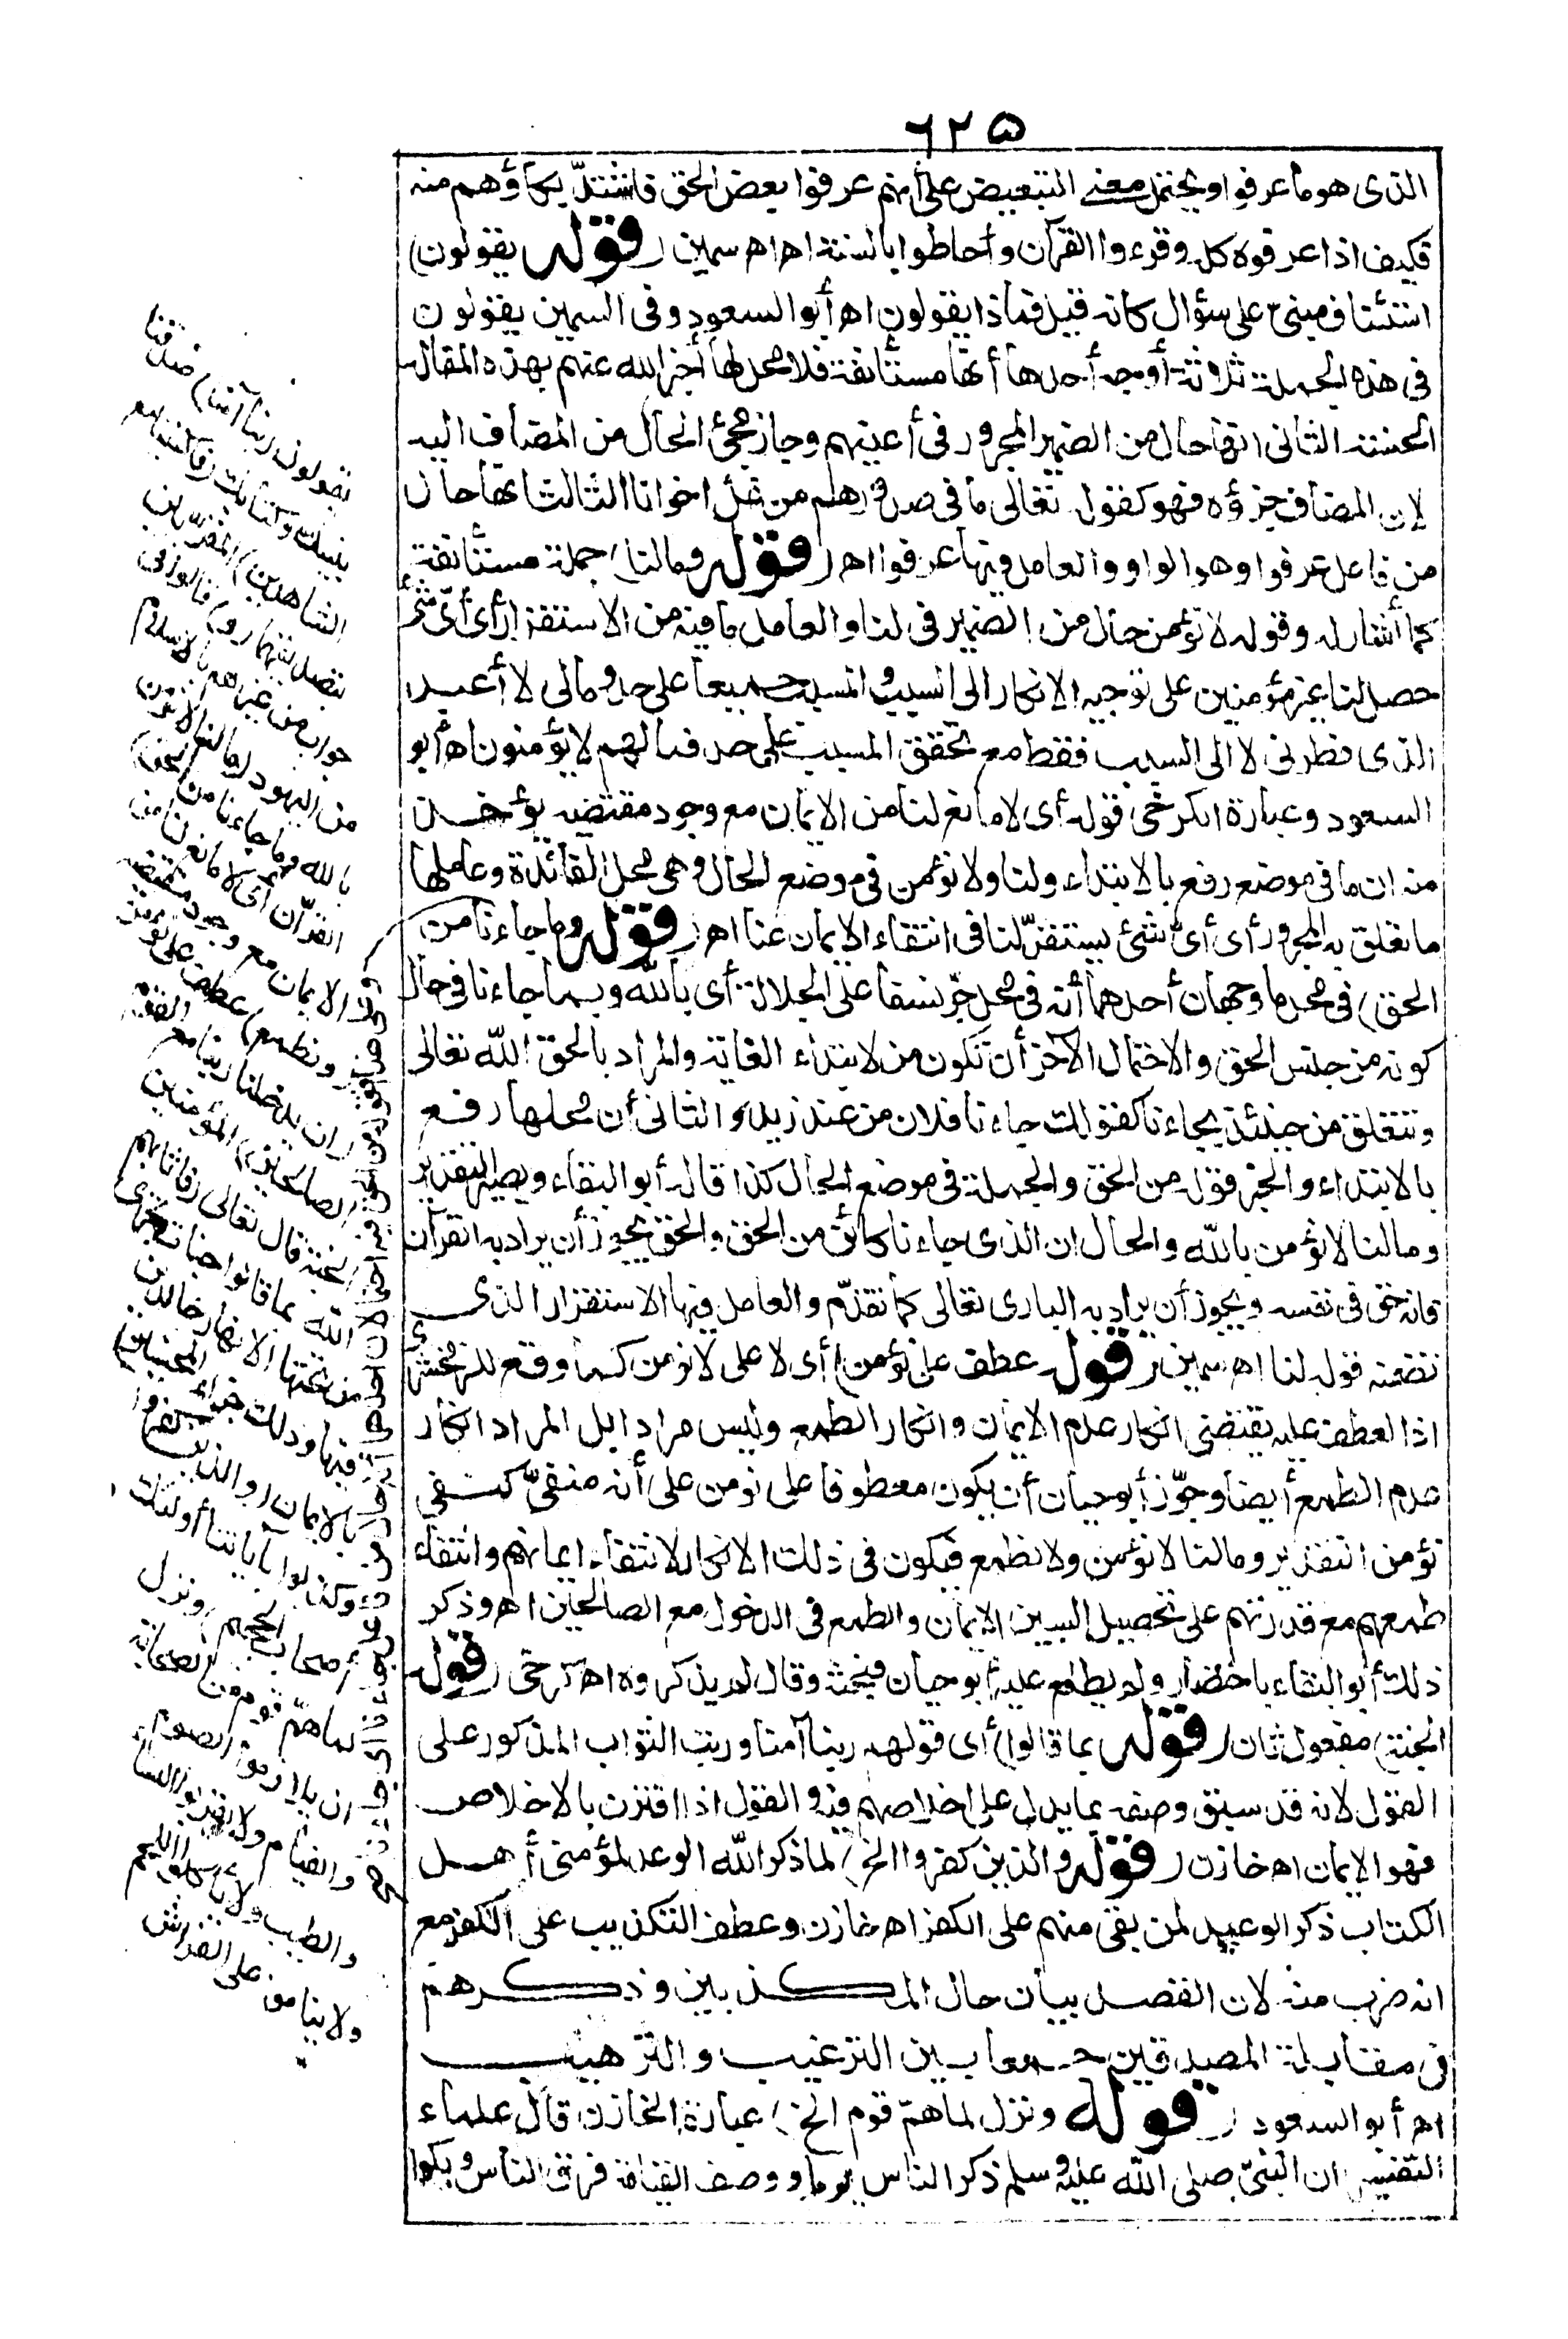 ٦٢٥
الذى هو ما عرفوا ويحتمل معنى التبعيض على أنهم عرفوا بعض الحق فاشتدّ بكاؤهم منه
فكيف اذا عرفوه كله وقرءوا القرآن وأحاطوا بالسنة اه اه سمين (قوله يقولون)
استئناف مبنىّ على سؤال كانه قيل فماذا يقولون اه أبو السعود وفى السمين يقولون
فى هذه الجملة ثلاثة أوجه أحدها أنها مستأنفة فلا محل لها أخبر الله عنهم بهذه المقالة
الحسنة الثانى انها حال من الضمير المجرور فى أعينهم وجاز مجىء الحال من المضاف اليه
لان المضاف جزؤه فهو كقوله تعالى ما فى صدورهم من غل اخوانا الثالث انها حال
من فاعل عرفوا وهو الواو والعامل فيها عرفوا اه (قوله وما لنا) جملة مستأنفة
كما أشار له وقوله لا نؤمن حال من الضمير فى لنا والعامل ما فيه من الاستقرار أى أىّ شئ
حصل لنا غير مؤمنين على توجيه الانكار الى السبب والمسبب جميعا على حد ومالى لا أعبد
الذى فطرنى لا الى السبب فقط مع تحقق المسبب على حد فما لهم لا يؤمنون اه أبو
السعود وعبارة الكرخى قوله أى لا مانع لنا من الايمان مع وجود مقتضيه يؤخذ
منه ان ما فى موضع رفع بالابتداء ولنا ولا نؤمن فى موضع الحال وهى محل الفائدة وعاملها
ما تعلق به المجرور أى أىّ شئ يستقرّ لنا فى انتفاء الايمان عنا اه (قوله وما جاءنا من
الحق) فى محل ما وجهان أحدهما أنه فى محل جرّ نسقا على الجلالة أى بالله وبما جاءنا فى حال
كونه من جنس الحق والاحتمال الآخر أن تكون من لابتداء الغاية والمراد بالحق الله تعالى
وتتعلق من حينئذ بجاءنا كقولك جاءنا فلان من عند زيد والثانى أن محلها رفع
بالابتداء والخبر قوله من الحق والجملة فى موضع الحال كذا قاله أبو البقاء ويصير التقدير
وما لنا لا نؤمن بالله والحال ان الذى جاءنا كائن من الحق والحق يجوز أن يراد به القرآن
فانه حق فى نفسه ويجوز أن يراد به البارى تعالى كما تقدّم والعامل فيها الاستقرار الذى
تضمنه قوله لنا اه سمين (قوله عطف على نؤمن) أى لا على لا نؤمن كما وقع للزمخشرى
اذ العطف عليه يقتضى انكار عدم الايمان وانكار الطمع وليس مرادا بل المراد انكار
عدم الطمع أيضا وجوّز أبو حيان أن يكون معطوفا على نؤمن على أنه منفىّ كنفى
نؤمن التقدير وما لنا لا نؤمن ولا نطمع فيكون فى ذلك الانكار لانتفاء ايمانهم وانتفاء
طمعهم مع قدرتهم على تحصيل السببين الايمان والطمع فى الدخول مع الصالحين اه وذكر
ذلك أبو البقاء باختصار ولم يطلع عليه أبو حيان فبحثه وقال لم يذكروه اه كرخى (قوله
الجنة) مفعول ثان (قوله بما قالوا) أى قولهم ربنا آمنا ورتب الثواب المذكور على
القول لانه قد سبق وصفه بما يدل على اخلاصهم فيه والقول اذا اقترن بالاخلاص
فهو الايمان اه خازن (قوله والذين كفروا الخ) لما ذكر الله الوعد لمؤمنى أهل
الكتاب ذكر الوعيد لمن بقى منهم على الكفر اه خازن وعطف التكذيب على الكفر مع
انه ضرب منه لان القصد بيان حال المكذبين وذكرهم
فى مقابلة المصدقين جمعا بين الترغيب والترهيب
اه أبو السعود (قوله ونزل لما همّ قوم الخ) عبارة الخازن قال علماء
التفسير ان النبىّ صلى الله عليه وسلم ذكر الناس يوما ووصف القيامة فرق الناس وبكوا
يقولون ربنا آمنا) صدقنا
بنبيك وكتابك (فاكتبنا مع
الشاهدين) المقرّبين
بتصديقهما (و) قالوا فى
جواب من عيرهم بالاسلام
من اليهود (ما لنا لا نؤمن
بالله وما جاءنا من الحق)
القرآن أى لا مانع لنا من
الايمان مع وجود مقتضيه
(ونطمع) عطف على نؤمن
(أن يدخلنا ربنا مع القوم
الصالحين) المؤمنين
الجنة قال تعالى (فأثابهم
الله بما قالوا جنات تجرى
من تحتها الانهار خالدين
فيها وذلك جزاء المحسنين)
بالايمان (والذين كفروا
وكذبوا بآياتنا أولئك
أصحاب الجحيم) ونزل
لما همّ قوم من الصحابة
ان يلازموا الصوم
والقيام ولا يقربوا النساء
والطيب ولا يأكلوا اللحم
ولا يناموا على الفراش